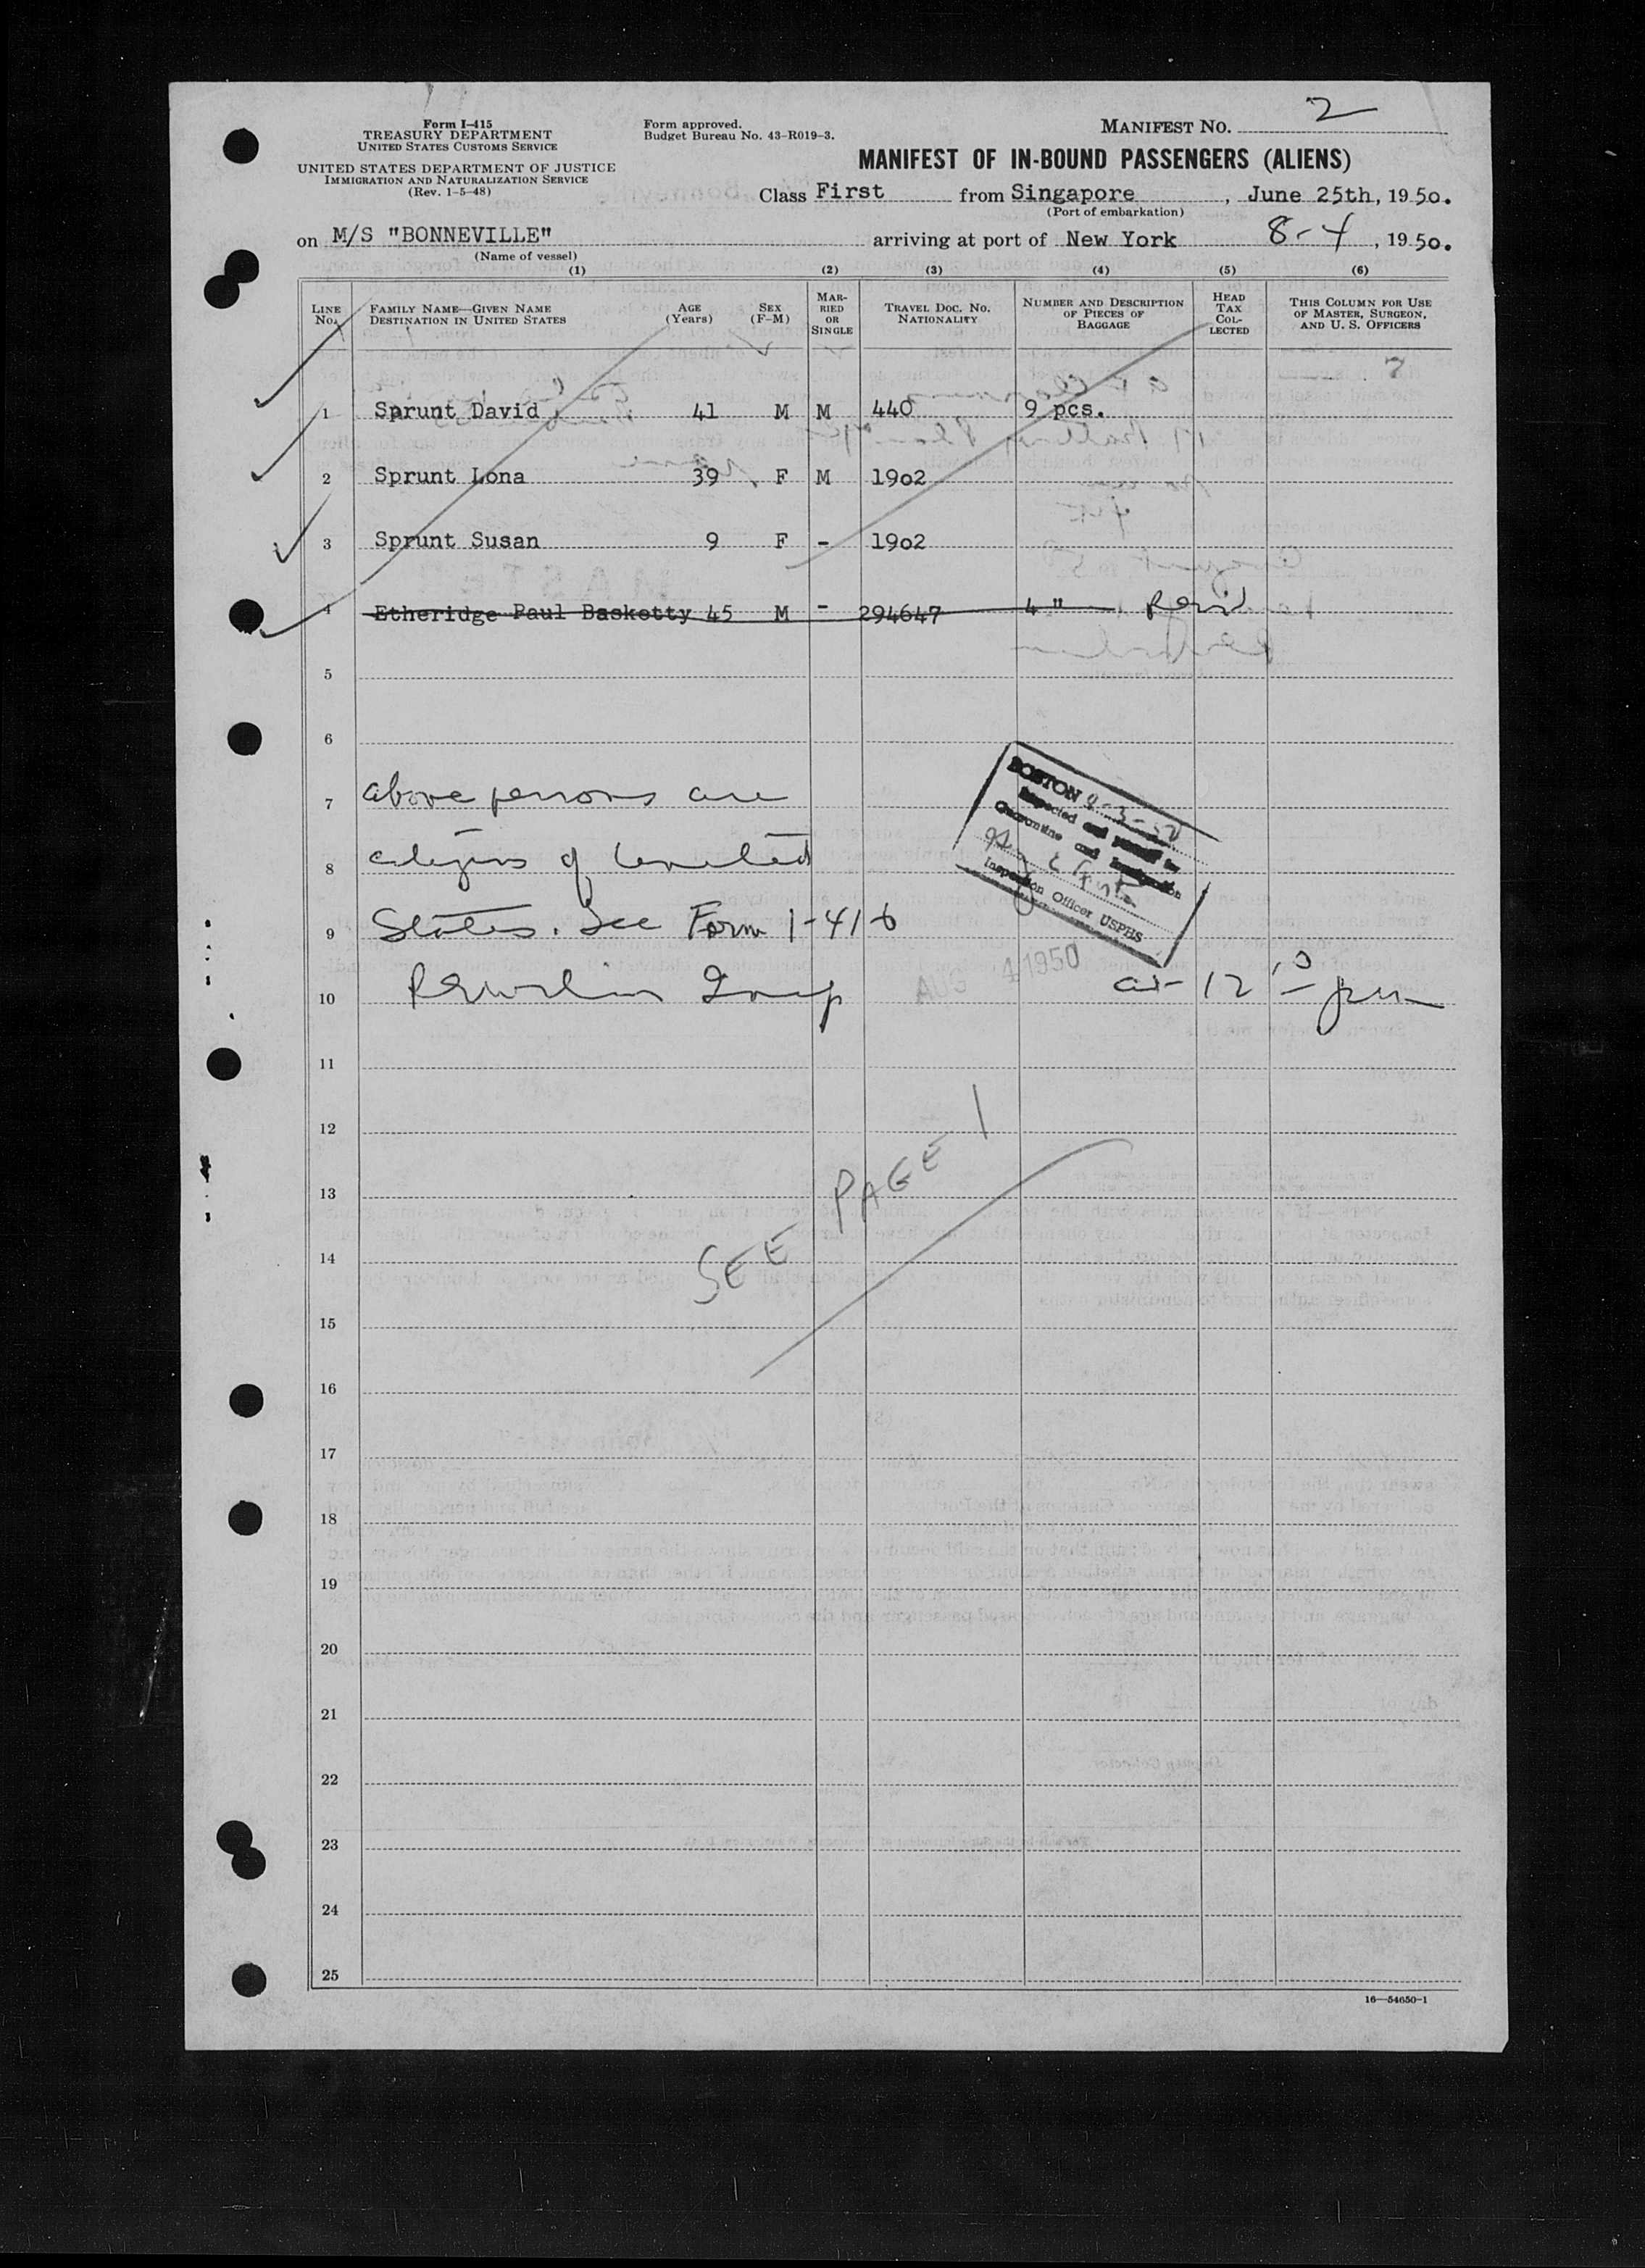 Form I-415
TREASURY DEPARTMENT
UNITED STATES CUSTOMS SERVICE
UNITED STATES DEPARTMENT OF JUSTICE
IMMIGRATION AND NATURALIZATION SERVICE
(Rev. 1-5-48)
Form approved.
Budget Bureau No. 43-R019-3.
MANIFEST NO. 2
MANIFEST OF IN-BOUND PASSENGERS (ALIENS)
Class First from Singapore, June 25th, 1950.
(Port of embarkation)
on M/S "BONNEVILLE" arriving at port of New York 8-4, 1950.
(Name of vessel)
(1) (2) (3) (4) (5) (6)
LINE No. FAMILY NAME—GIVEN NAME DESTINATION IN UNITED STATES AGE (Years) SEX (F-M) MARRIED OR SINGLE TRAVEL DOC. NO. NATIONALITY NUMBER AND DESCRIPTION OF PIECES OF BAGGAGE HEAD TAX COLLECTED THIS COLUMN FOR USE OF MASTER, SURGEON, AND U. S. OFFICERS
1 Sprunt David 41 M M 440 9 pcs.
2 Sprunt Lona 39 F M 19o2
3 Sprunt Susan 9 F - 19o2
4 Etheridge Paul Basketty 45 M - 294647 4 "
5
6
7 above persons are
8 citizens of United
9 States. See Form I-416
10 Insp at 12 pm
BOSTON 8-3-50
Inspected and
Quarantine and Immigration
Inspection Officer USPHS
AUG 4 1950
11
12
13
14
SEE PAGE 1
15
16
17
18
19
20
21
22
23
24
25
16—54650-1